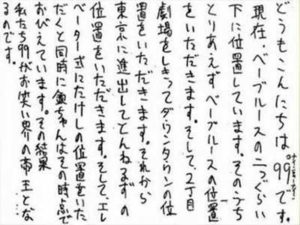 どうもこんにちは99です。
現在、ベーブルースの二つぐらい
下に位置しています。そのうち
とりあえず ベーブルースの位置
をいただきます。そして、2丁目
劇場をしきってダウンタウンの位
置をいただきます。それから
東京に進出してとんねるずの
位置をいただきます。そして、エレ
ベーター式にたけしの位置をいた
だくと同時に金ちゃんはその時点で
おびえています。その結果
私たち99がお笑い界の帝王とな
るのです。